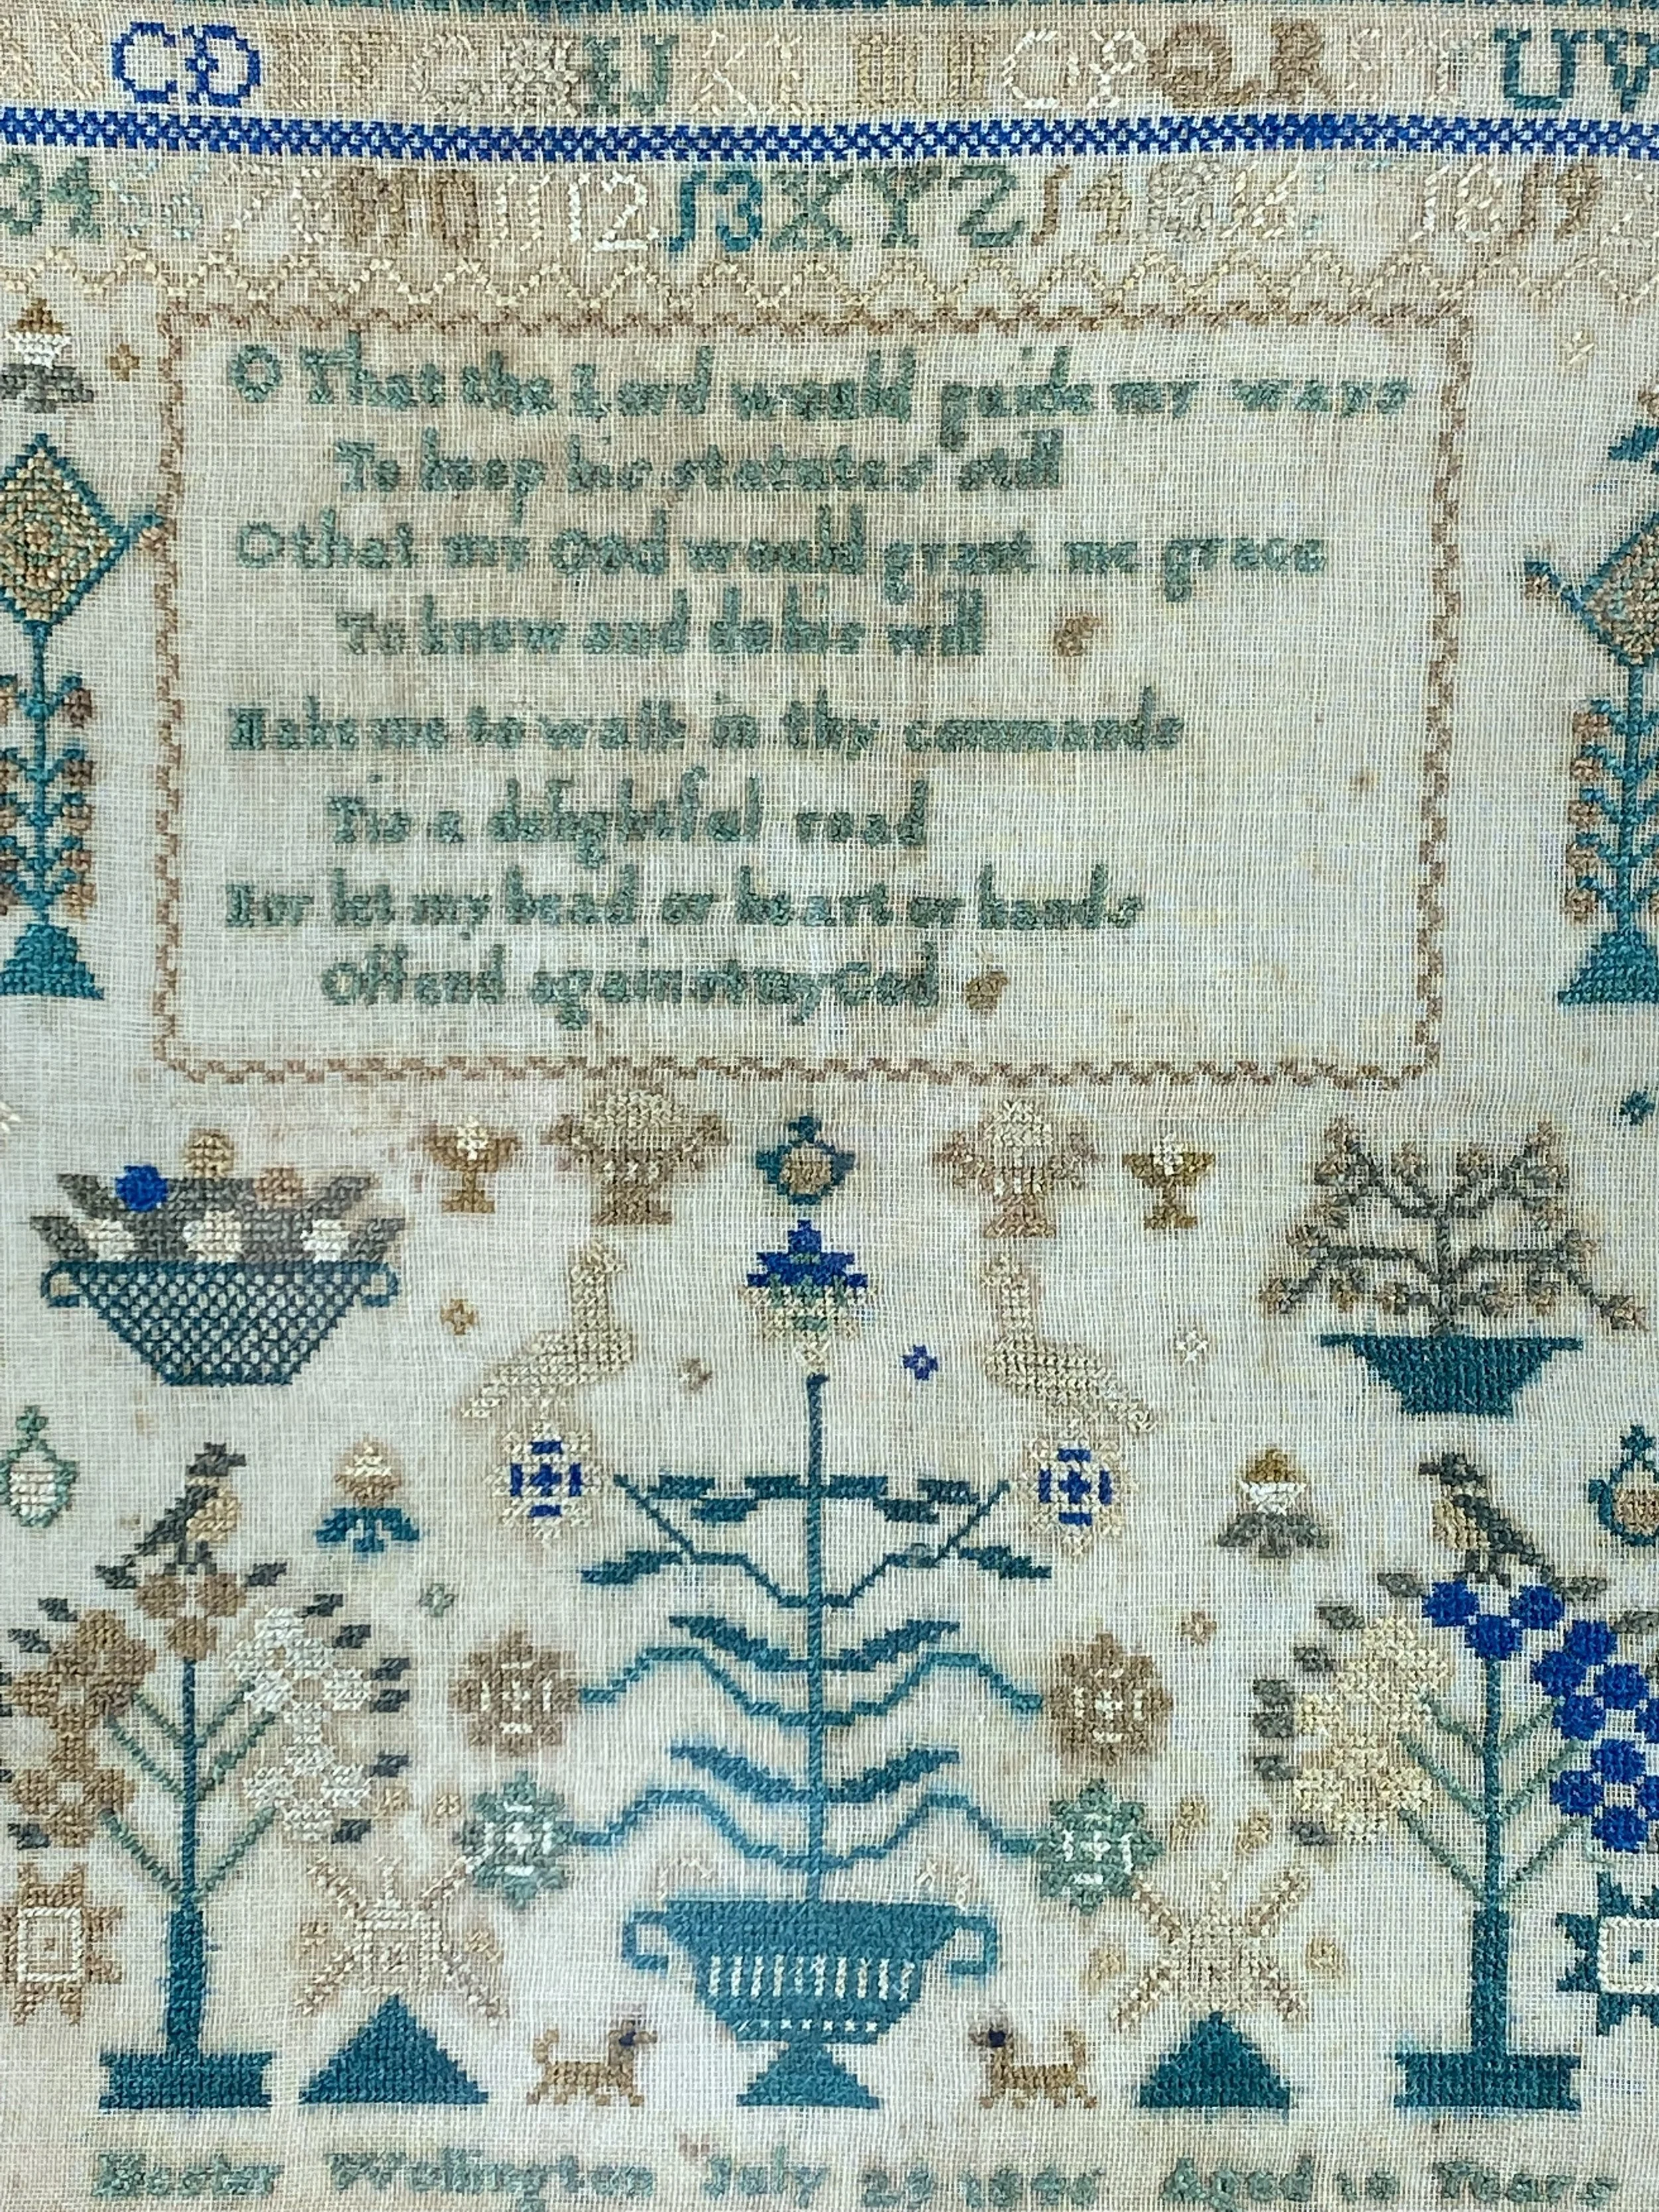 C D E F G H I J K L M N O P Q R S T U V
3 4 5 6 7 8 9 10 11 12 13 X Y Z 14 15 16 17 18 19
O That the Lord would guide my ways
To keep his statutes still
O that my God would grant me grace
To know and do his will
Make me to walk in thy commands
Tis a delightful road
Nor let my head or heart or hands
Offend against my God
Hester Wellington July 29 Aged Years